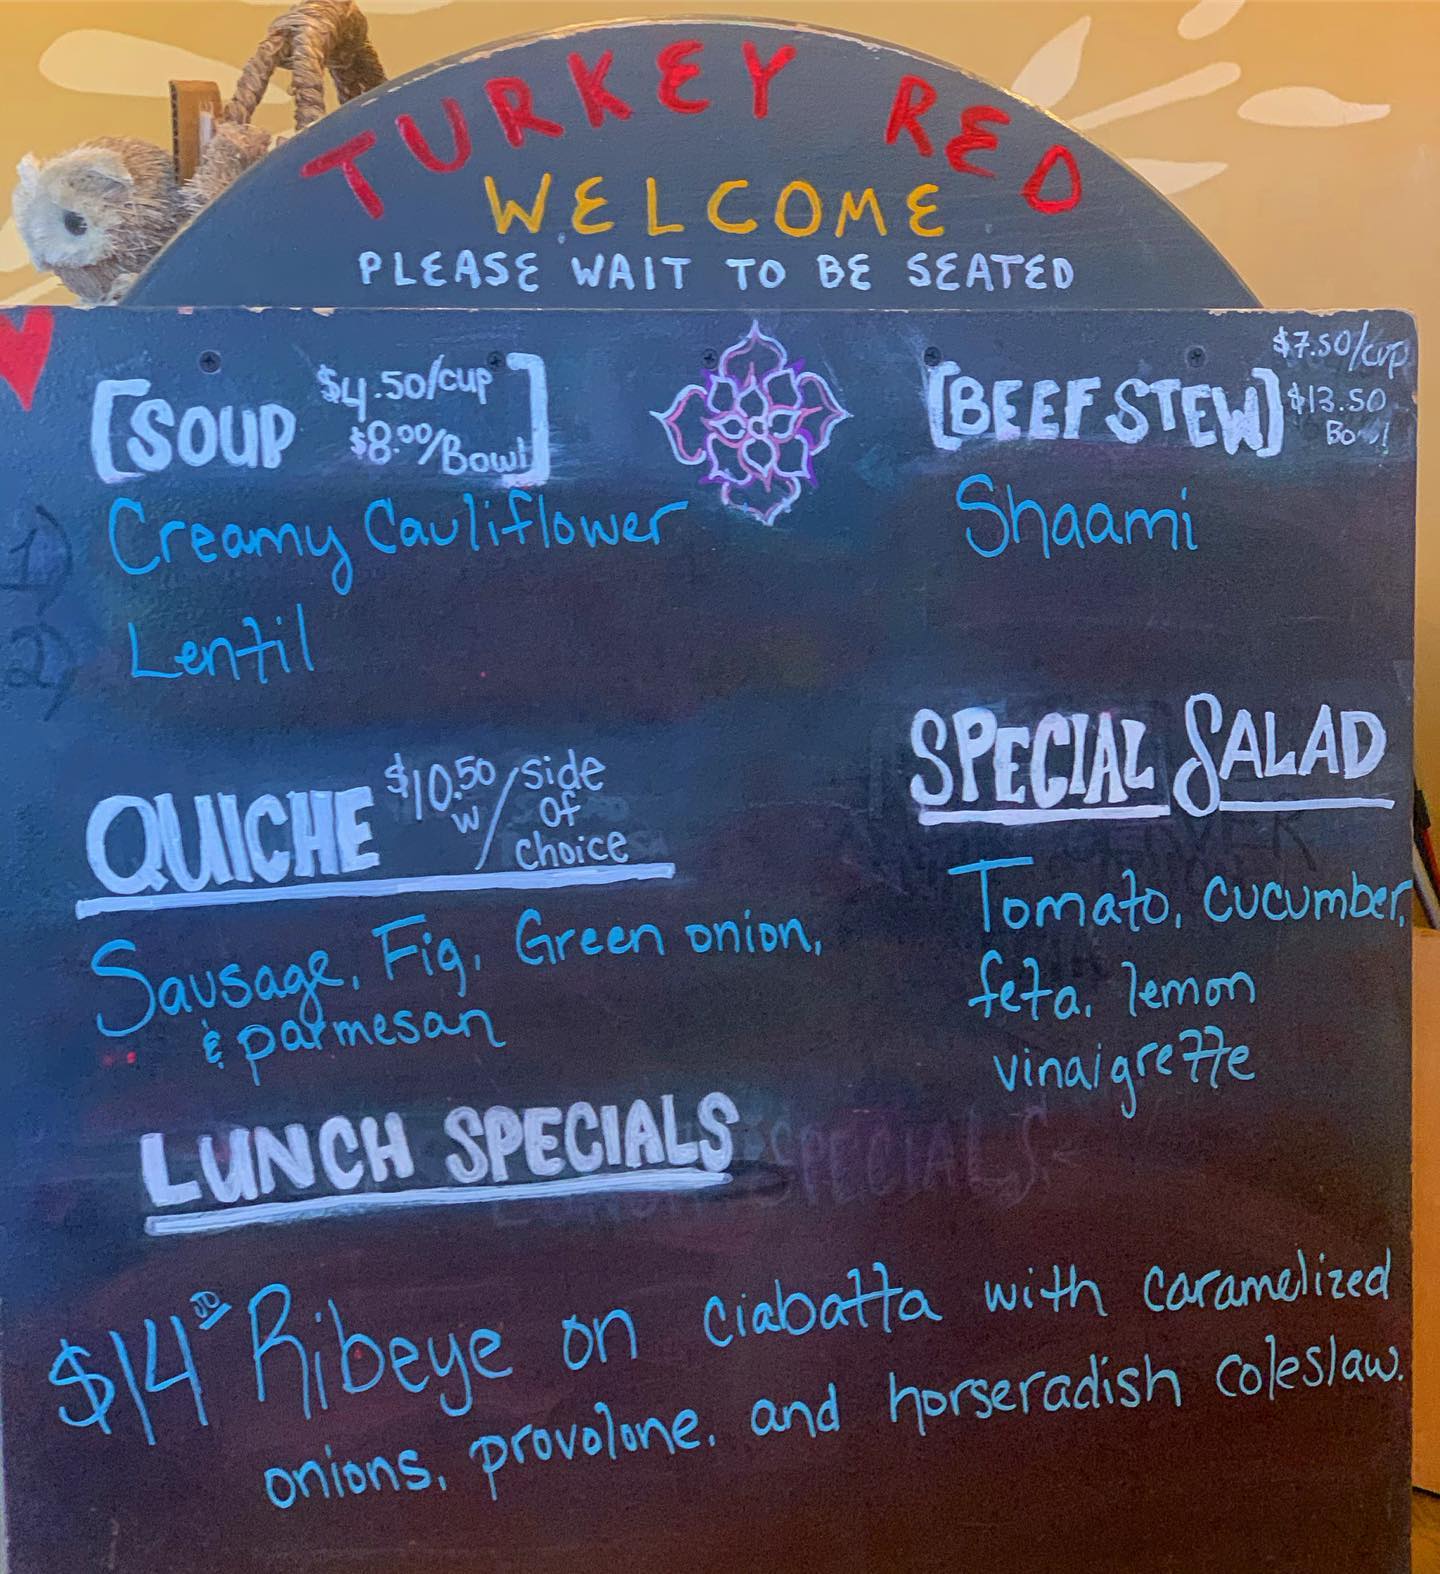 TURKEY RED
WELCOME
PLEASE WAIT TO BE SEATED
[SOUP $4.50/cup
$8.00/Bowl]
1) Creamy Cauliflower
2) Lentil
[BEEF STEW] $7.50/cup
$13.50
Bowl
Shaami
QUICHE $10.50 w/ side
of
choice
Sausage, Fig, Green onion,
& parmesan
SPECIAL SALAD
Tomato, cucumber,
feta, lemon
vinaigrette
LUNCH SPECIALS
$14 Ribeye on ciabatta with caramelized
onions, provolone, and horseradish coleslaw.